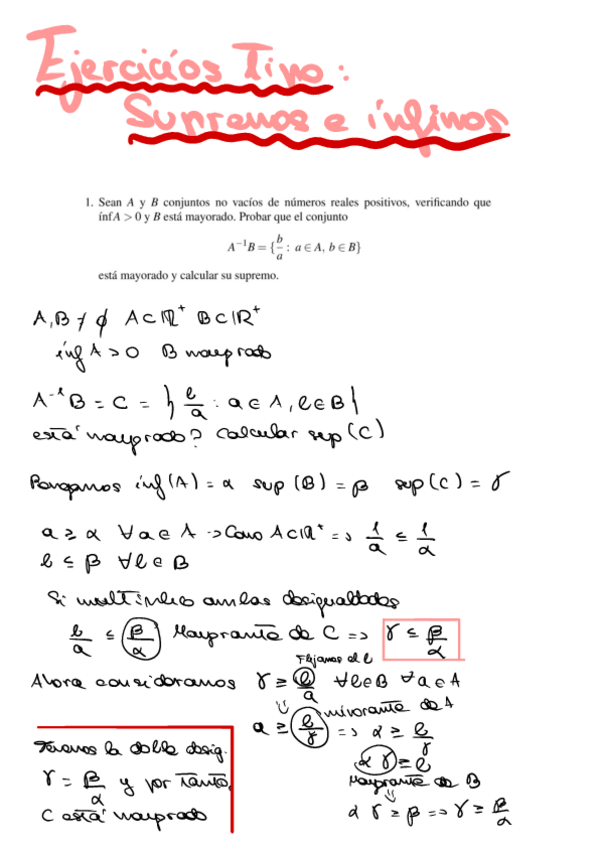 Ejercicios Tipo:
Supremos e ínfimos
1. Sean A y B conjuntos no vacíos de números reales positivos, verificando que
ínf A > 0 y B está mayorado. Probar que el conjunto
A⁻¹B = {b/a : a ∈ A, b ∈ B}
está mayorado y calcular su supremo.
A, B ≠ ∅ A⊂ℝ⁺ B⊂ℝ⁺
ínf A > 0 B mayorado
A⁻¹B = C = { b/a : a ∈ A, b ∈ B }
está mayorado? Calcular sup(C)
Pongamos ínf(A) = α sup(B) = β sup(C) = γ
a ≥ α ∀a ∈ A → Como A⊂ℝ⁺ => 1/a ≤ 1/α
b ≤ β ∀b ∈ B
Si multiplico ambas desigualdades
b/a ≤ β/α Mayorante de C => γ ≤ β/α
Fijamos el b
Ahora consideramos γ ≥ b/a ∀b∈B ∀a∈A
minorante de A
a ≥ b/γ => α ≥ b/γ
αγ ≥ b
Mayorante de B
αγ ≥ β => γ ≥ β/α
Tenemos la doble desig.
γ = β/α y por tanto,
C está mayorado